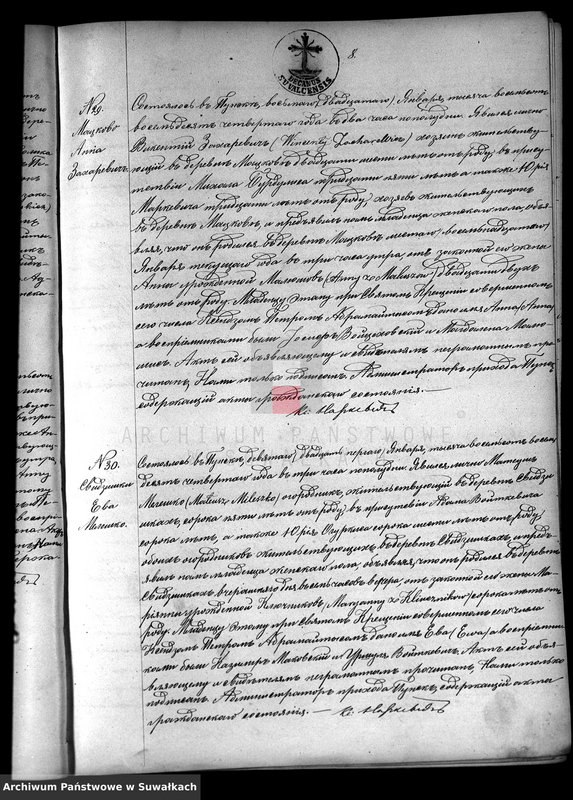 8.
DECANUS SUVALCENSIS
№ 29.
Мацково
Анна
Захаревичъ
Состоялось въ Пунскѣ, восьмаго (двадцатаго) Января, тысяча восемьсотъ
восемьдесятъ четвертаго года въ два часа пополудни. Явился лично
Викентій Захаревичъ (Wincenty Zacharewicz) хозяинъ жительствую-
щій въ деревнѣ Мацковѣ двадцати шести лѣтъ отъ роду, въ присут-
ствіи Михала тридцати пяти лѣтъ, а также Юрія
Маркевича тридцати лѣтъ отъ роду, хозяевъ жительствующихъ
въ деревнѣ Мацковѣ, и предъявилъ намъ младенца женскаго пола, объя-
вляя, что онъ родился въ деревнѣ Мацковѣ шестаго (восемнадцатаго)
Января текущаго года въ три часа утра, отъ законной его жены
Анны урожденной (Anny z ) двадцати двухъ
лѣтъ отъ роду. Младенцу этому при Святомъ Крещеніи совершенномъ
сего числа Ксендзомъ Петромъ дано имя Анна (Anna)
а воспріемниками были Войцеховскій и Магдалена
Актъ сей объявляющему и свидѣтелямъ неграмотнымъ про-
читанъ, Нами только подписанъ. Администраторъ прихода Пунскъ
содержащій акты гражданскаго состоянія. —
Кс. Маркевичъ
ARCHIWUM PAŃSTWOWE
№ 30.
Свидзишки
Ева
Милешко.
Состоялось въ Пунскѣ, девятаго (двадцать перваго) Января, тысяча восемьсотъ восемь-
десятъ четвертаго года въ три часа пополудни. Явился лично Матеушъ
Милешко (Mateusz Mileszko) огородникъ, жительствующій въ деревнѣ Свидзи-
шкахъ, сорока пяти лѣтъ отъ роду, въ присутствіи Адама Войткевича
сорока лѣтъ, а также Юрія сорока шести лѣтъ отъ роду,
обоихъ огородниковъ жительствующихъ въ деревнѣ Свидзишкахъ, и предъ-
явилъ намъ младенца женскаго пола, объявляя, что онъ родился въ деревнѣ
Свидзишкахъ вчерашняго дня въ семь часовъ вечера, отъ законной его жены Ма-
ріанны урожденной (Maryanny z ) сорока лѣтъ отъ
роду. Младенцу этому при Святомъ Крещеніи совершенномъ сего числа
Ксендзомъ Петромъ дано имя Ева (Ewa) а воспріемни-
ками были Казимиръ Маковскій и Уршуля Актъ сей объя-
вляющему и свидѣтелямъ неграмотнымъ прочитанъ, Нами только
подписанъ. Администраторъ прихода Пунскъ, содержащій акты
гражданскаго состоянія. — Кс. Маркевичъ
Archiwum Państwowe w Suwałkach